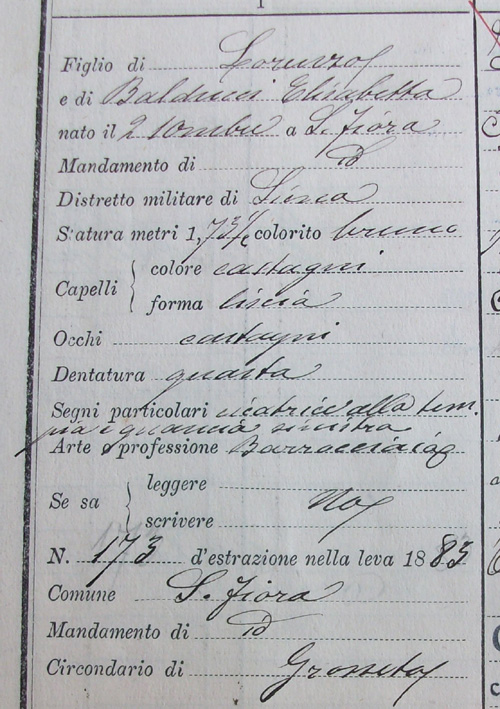 Figlio di Lorenzo
e di Balducci Elisabetta
nato il 2 10mbre a S. Fiora
Mandamento di id
Distretto militare di Siena
Statura metri 1,72 ½ colorito bruno
Capelli colore castagni
forma liscia
Occhi castagni
Dentatura guasta
Segni particolari cicatrice alla tem
pia e guancia sinistra
Arte o professione
Se sa leggere No
scrivere
N. 173 d'estrazione nella leva 1883
Comune S. Fiora
Mandamento di id
Circondario di Grosseto